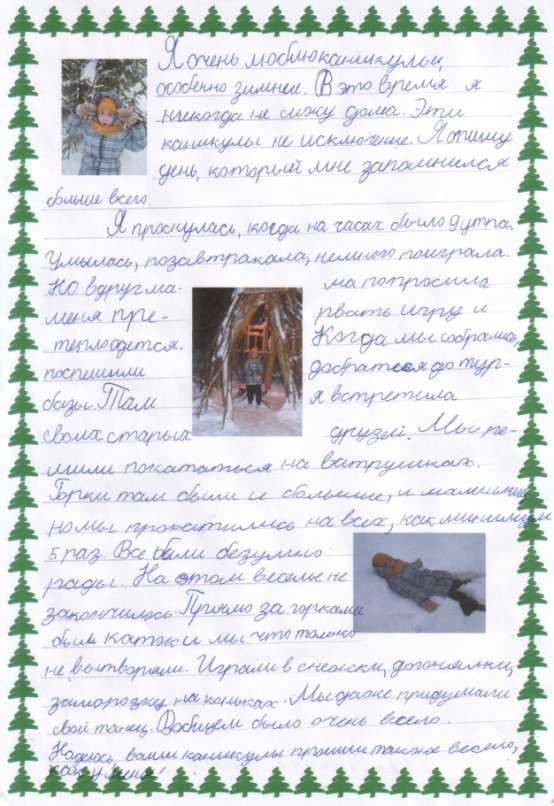 Я очень люблю каникулы,
особенно зимнее. В это время я
никогда не сижу дома. Эти
каникулы не исключение. Я опишу
день, который мне запомнился
больше всего.
Я проснулась, когда на часах было 9 утра.
Умылась, позавтракала, немного поиграла.
Но вдруг ма- ма попросила
меня пре- рвать игру и
теплоодется. Когда мы собрались,
поспешили добраться до тур-
базы. Там я встретила
своих старых друзей. Мы ре-
шили покататься на ватрушках.
Горки там были и большие, и маленькие,
но мы прокатились на всех, как минимум
5 раз. Все были безумно
рады. На этом веселье не
закончилось. Прямо за горками
был каток и мы что только
не вытворяли. Играли в снежки, догонялки,
заморозку на коньках. Мы даже придумали
свой танец. Вобщем было очень весело.
Надеюсь, ваши каникулы прошли также весело,
как у меня!